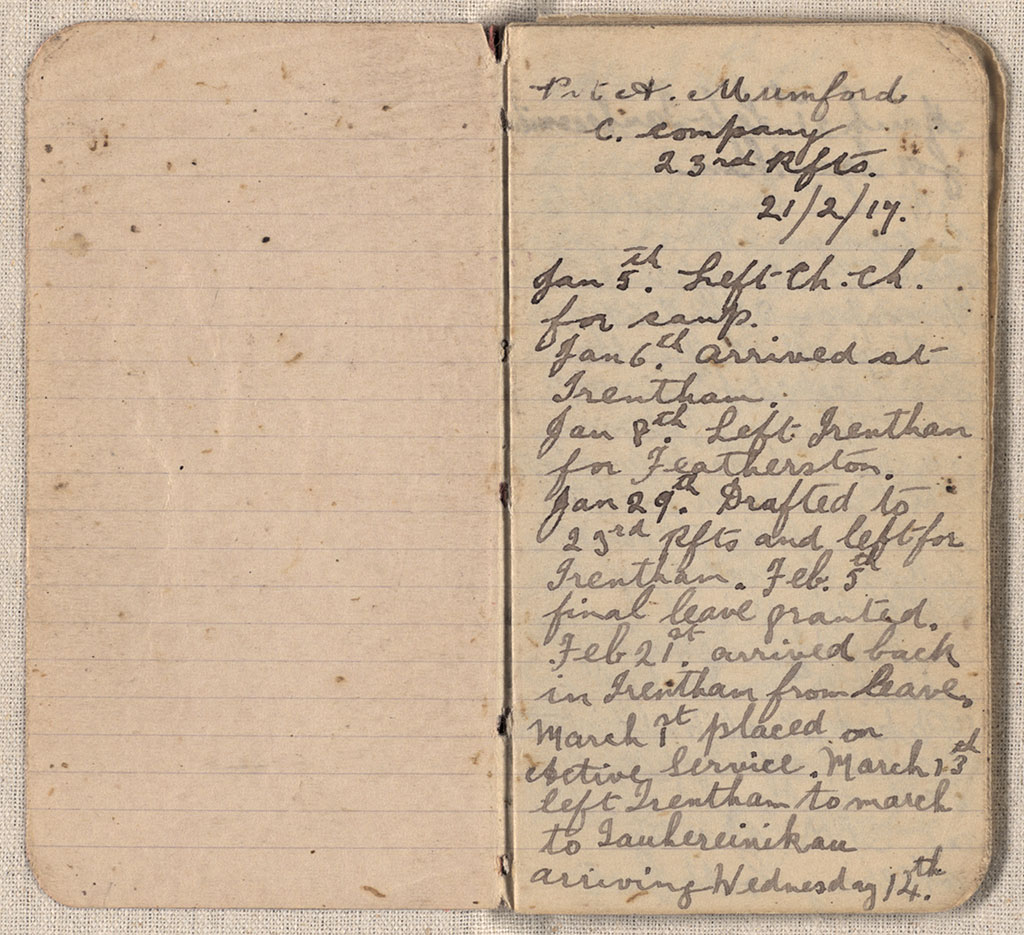 Pvt A. Mumford
C. company
23rd Rfts.
21/2/17.
Jan 5th. Left Ch. Ch.
for camp.
Jan 6th. arrived at
Trentham.
Jan 8th. Left Trentham
for Featherston.
Jan 29th. Drafted to
23rd Rfts and left for
Trentham. Feb. 5th
final leave granted.
Feb 21st. arrived back
in Trentham from leave,
March 1st placed on
Active Service. March 13th
left Trentham to march
to Tauhereinikau
arriving Wednesday 14th.